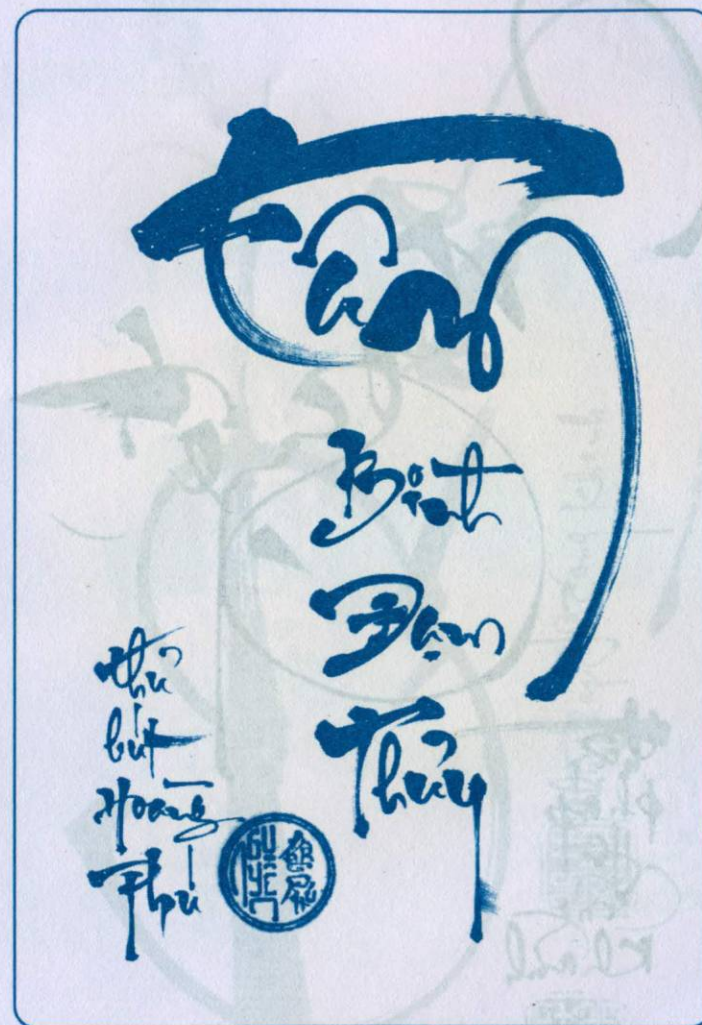 Tâm
Bình
Đạm
Thủy
Thủ
bút
Hoàng
Phú